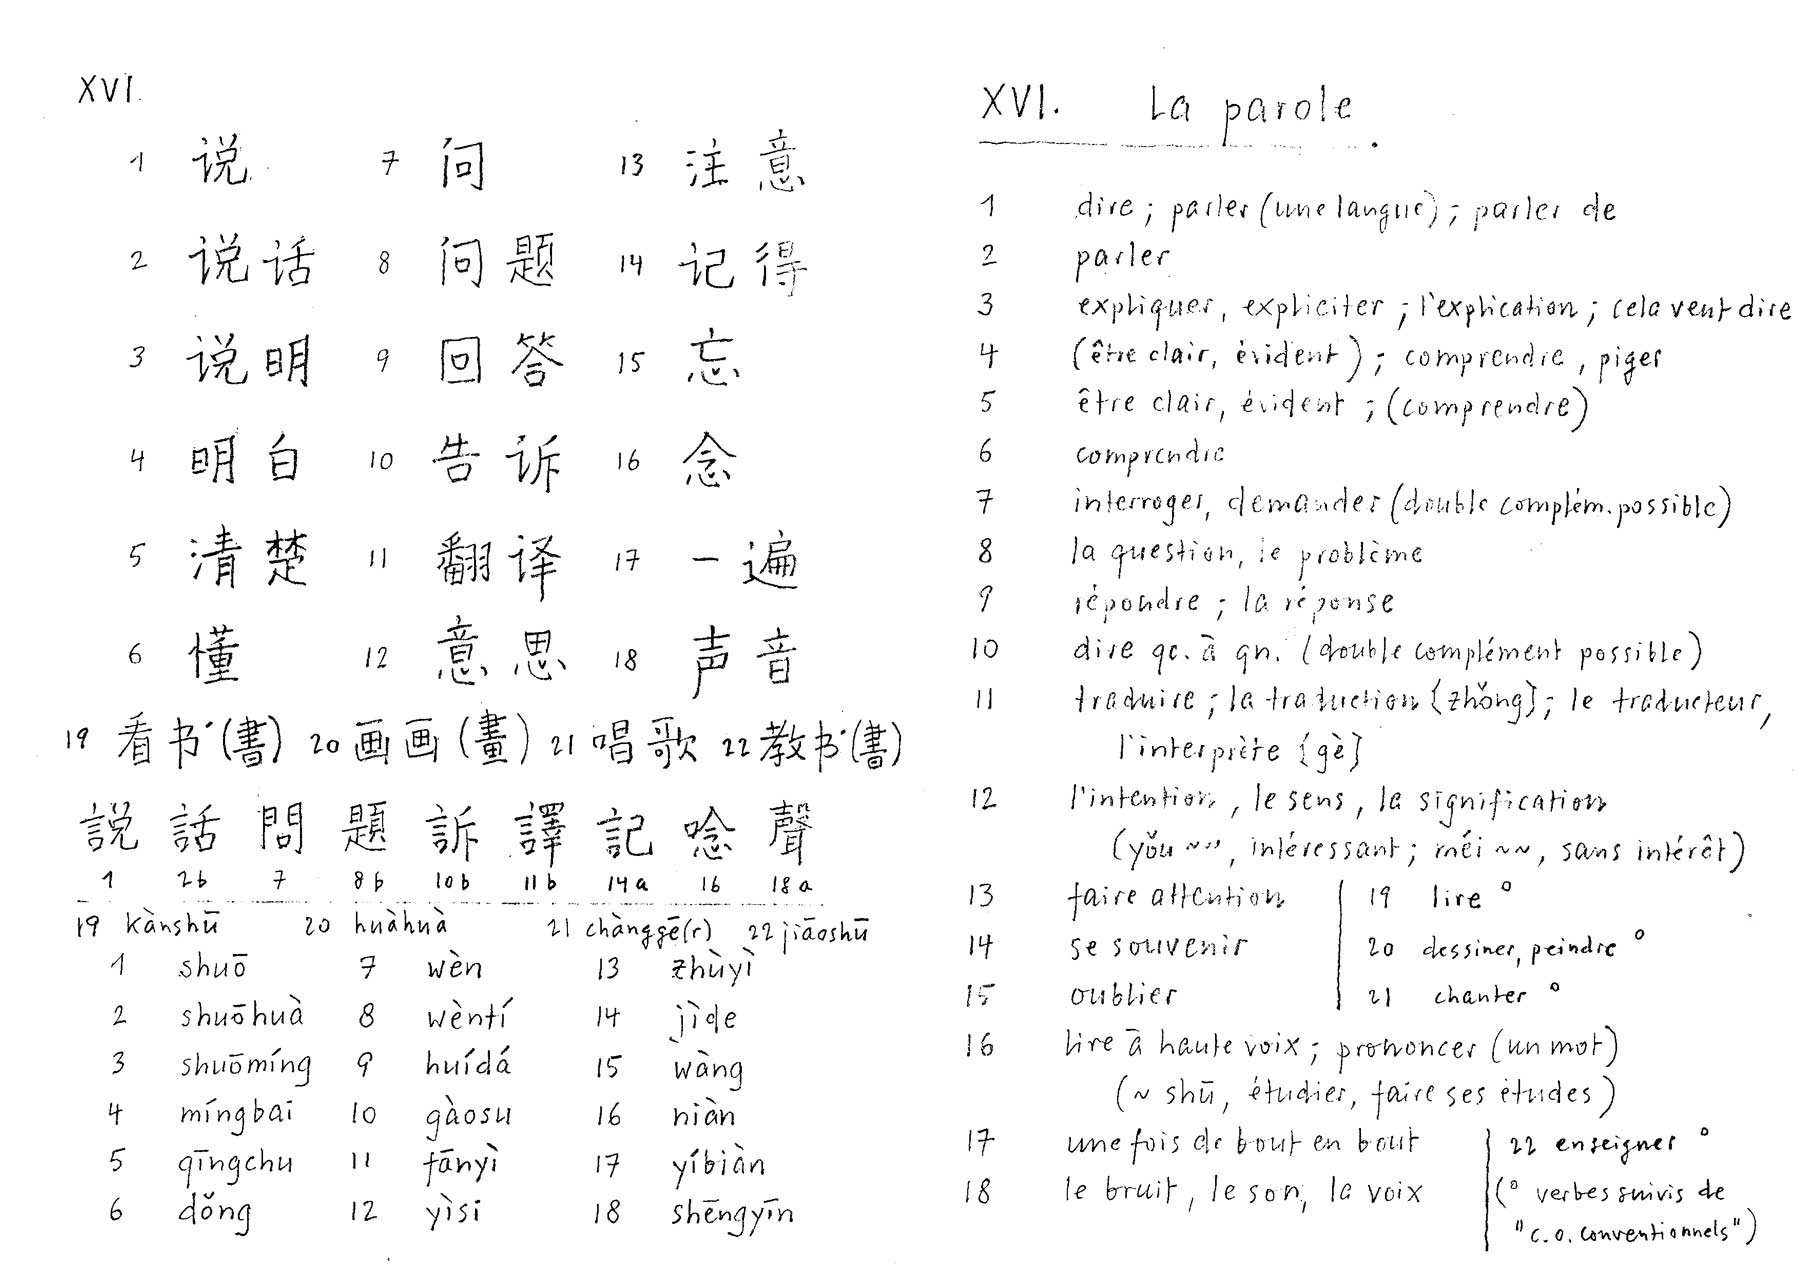 XVI.
1 说 7 问 13 注意
2 说话 8 问题 14 记得
3 说明 9 回答 15 忘
4 明白 10 告诉 16 念
5 清楚 11 翻译 17 一遍
6 懂 12 意思 18 声音
19 看书(書) 20 画画(畫) 21 唱歌 22 教书(書)
説 話 問 題 訴 譯 記 唸 聲
1 2b 7 8b 10b 11b 14a 16 18a
19 kànshū 20 huàhuà 21 chànggē(r) 22 jiāoshū
1 shuō 7 wèn 13 zhùyì
2 shuōhuà 8 wèntí 14 jìde
3 shuōmíng 9 huídá 15 wàng
4 míngbai 10 gàosu 16 niàn
5 qīngchu 11 fānyì 17 yíbiàn
6 dǒng 12 yìsi 18 shēngyīn
XVI. La parole
1 dire ; parler (une langue) ; parler de
2 parler
3 expliquer, expliciter ; l'explication ; cela veut dire
4 (être clair, évident) ; comprendre, piger
5 être clair, évident ; (comprendre)
6 comprendre
7 interroger, demander (double complém. possible)
8 la question, le problème
9 répondre ; la réponse
10 dire qc. à qn. (double complément possible)
11 traduire ; la traduction {zhǒng} ; le traducteur,
l'interprète {gè}
12 l'intention, le sens, la signification
(yǒu ~~, intéressant ; méi ~~, sans intérêt)
13 faire attention 19 lire °
14 se souvenir 20 dessiner, peindre °
15 oublier 21 chanter °
16 lire à haute voix ; prononcer (un mot)
(~ shū, étudier, faire ses études)
17 une fois de bout en bout 22 enseigner °
18 le bruit, le son, la voix (° verbes suivis de
"c.o. conventionnels")